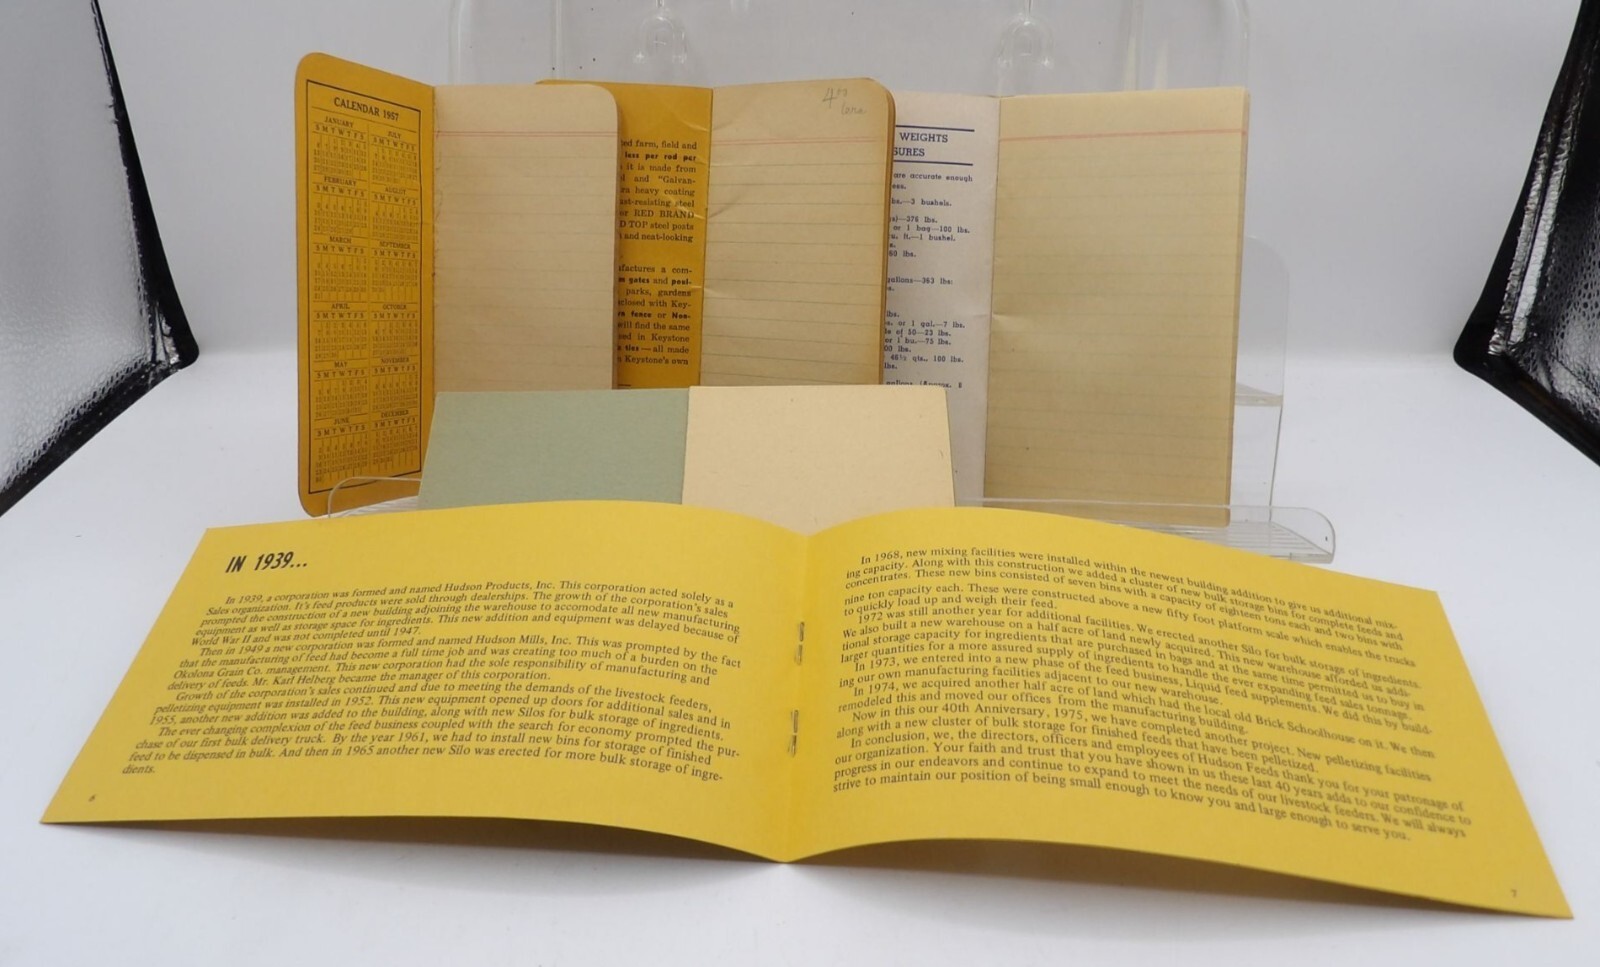 CALENDAR 1957
JANUARY
JULY
S M T W T F S
S M T W T F S
FEBRUARY
AUGUST
S M T W T F S
S M T W T F S
MARCH
SEPTEMBER
S M T W T F S
S M T W T F S
APRIL
OCTOBER
S M T W T F S
S M T W T F S
MAY
NOVEMBER
S M T W T F S
S M T W T F S
JUNE
DECEMBER
S M T W T F S
S M T W T F S
farm, field and
less per rod per
it is made from
and "Galvan-
heavy coating
-resisting steel
RED BRAND
TOP steel posts
and neat-looking
a com-
gates and poul-
parks, gardens
with Key-
fence or Non-
will find the same
in Keystone
ties — all made
Keystone's own
4.00
WEIGHTS
are accurate enough
—3 bushels.
—376 lbs.
or 1 bag—100 lbs.
ft.—1 bushel.
60 lbs.
gallons—363 lbs.
lbs.
or 1 gal.—7 lbs.
of 50—23 lbs.
or 1 bu.—75 lbs.
lbs.
46½ qts., 100 lbs.
lbs.
IN 1939...
In 1939, a corporation was formed and named Hudson Products, Inc. This corporation acted solely as a
Sales organization. It's feed products were sold through dealerships. The growth of the corporation's sales
prompted the construction of a new building adjoining the warehouse to accomodate all new manufacturing
equipment as well as storage space for ingredients. This new addition and equipment was delayed because of
World War II and was not completed until 1947.
Then in 1949 a new corporation was formed and named Hudson Mills, Inc. This was prompted by the fact
that the manufacturing of feed had become a full time job and was creating too much of a burden on the
Okolona Grain Co. management. This new corporation had the sole responsibility of manufacturing and
delivery of feeds. Mr. Karl Helberg became the manager of this corporation.
Growth of the corporation's sales continued and due to meeting the demands of the livestock feeders,
pelletizing equipment was installed in 1952. This new equipment opened up doors for additional sales and in
1955, another new addition was added to the building, along with new Silos for bulk storage of ingredients.
The ever changing complexion of the feed business coupled with the search for economy prompted the pur-
chase of our first bulk delivery truck. By the year 1961, we had to install new bins for storage of finished
feed to be dispensed in bulk. And then in 1965 another new Silo was erected for more bulk storage of ingre-
dients.
6
In 1968, new mixing facilities were installed within the newest building addition to give us additional mix-
ing capacity. Along with this construction we added a cluster of new bulk storage bins for complete feeds and
concentrates. These new bins consisted of seven bins with a capacity of eighteen tons each and two bins with
nine ton capacity each. These were constructed above a new fifty foot platform scale which enables the trucks
to quickly load up and weigh their feed.
1972 was still another year for additional facilities. We erected another Silo for bulk storage of ingredients.
We also built a new warehouse on a half acre of land newly acquired. This new warehouse afforded us addi-
tional storage capacity for ingredients that are purchased in bags and at the same time permitted us to buy in
larger quantities for a more assured supply of ingredients to handle the ever expanding feed sales tonnage.
In 1973, we entered into a new phase of the feed business, Liquid feed supplements. We did this by build-
ing our own manufacturing facilities adjacent to our new warehouse.
In 1974, we acquired another half acre of land which had the local old Brick Schoolhouse on it. We then
remodeled this and moved our offices from the manufacturing building.
Now in this our 40th Anniversary, 1975, we have completed another project. New pelletizing facilities
along with a new cluster of bulk storage for finished feeds that have been pelletized.
In conclusion, we, the directors, officers and employees of Hudson Feeds thank you for your patronage of
our organization. Your faith and trust that you have shown in us these last 40 years adds to our confidence to
progress in our endeavors and continue to expand to meet the needs of our livestock feeders. We will always
strive to maintain our position of being small enough to know you and large enough to serve you.
7